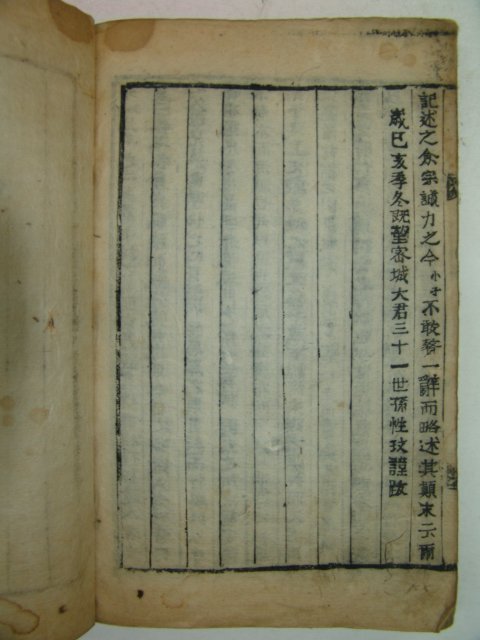 記述之余宗議力之今小子不敢贅一辭而略述其顚末云爾
歲己亥季冬旣望密城大君三十一世孫性玟謹跋